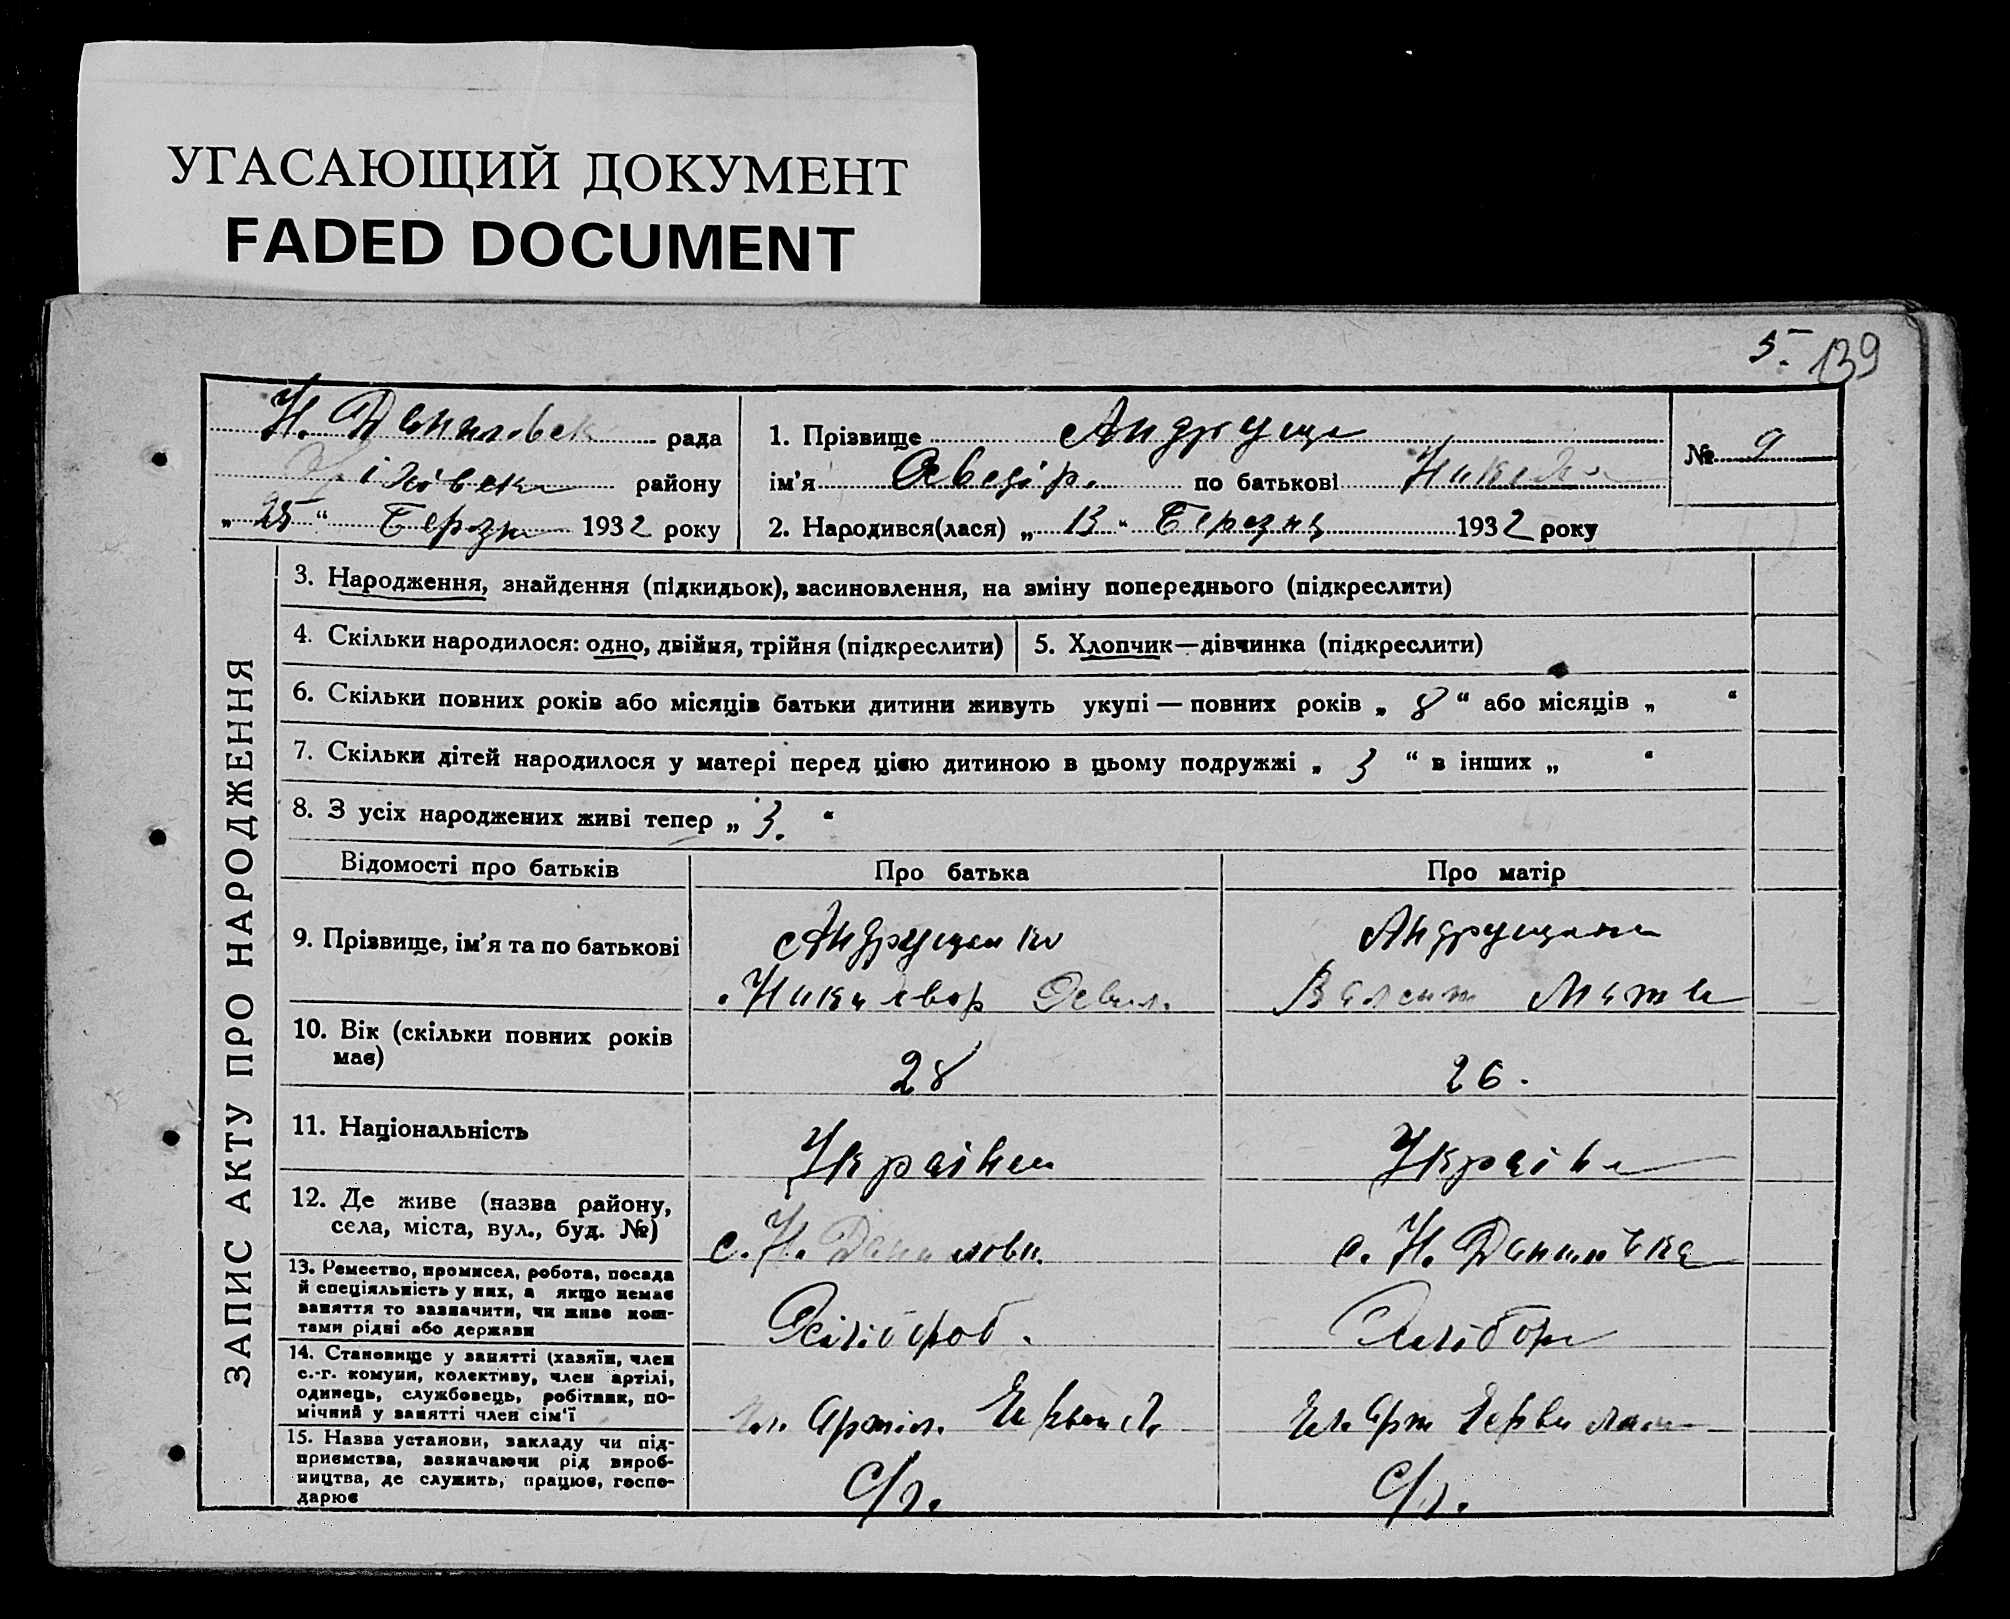 УГАСАЮЩИЙ ДОКУМЕНТ
FADED DOCUMENT
5. 139
Н. Даниловск рада
району
"25" Березн 1932 року
1. Прізвище Андруще
ім'я по батькові
№ 9
2. Народився(лася) „13“ Березня 1932 року
ЗАПИС АКТУ ПРО НАРОДЖЕННЯ
3. Народження, знайдення (підкидьок), засиновлення, на зміну попереднього (підкреслити)
4. Скільки народилося: одно, двійня, трійня (підкреслити)
5. Хлопчик—дівчинка (підкреслити)
6. Скільки повних років або місяців батьки дитини живуть укупі — повних років „ 8 “ або місяців „ “
7. Скільки дітей народилося у матері перед цією дитиною в цьому подружжі „ 3 “ в інших „ “
8. З усіх народжених живі тепер „ 3. “
Відомості про батьків Про батька Про матір
9. Прізвище, ім'я та по батькові
Андрущенко
Андрущенк
10. Вік (скільки повних років має)
28
26.
11. Національність
Українец
Україн
12. Де живе (назва району, села, міста, вул., буд. №)
с. Н. Даниловк.
с. Н. Данилівка
13. Ремество, промисел, робота, посада
й спеціяльність у них, а якщо немає
заняття то зазначити, чи живе кош-
тами рідні або держави
14. Становище у занятті (хазяїн, член
с.-г. комуни, колективу, член артілі,
одинець, службовець, робітник, по-
мічний у занятті член сім'ї
чл. Артіл.
чл. Арт
15. Назва установи, закладу чи під-
приємства, зазначаючи рід вироб-
ництва, де служить, працює, госпо-
дарює
с/г.
с/г.